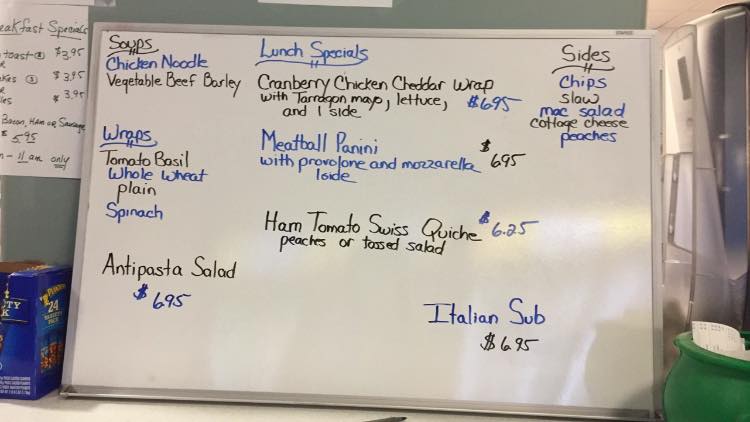 eakfast Specials
toast $3.95
akes $3.95
$3.95
Bacon, Ham or Sausage
$5.95
11 am only
Soups
Chicken Noodle
Vegetable Beef Barley
Wraps
Tomato Basil
Whole Wheat
plain
Spinach
Antipasta Salad
$6.95
Lunch Specials
Cranberry Chicken Cheddar Wrap
with Tarragon mayo, lettuce, $6.95
and 1 side
Meatball Panini $6.95
with provolone and mozzarella
1 side
Ham Tomato Swiss Quiche $6.25
peaches or tossed salad
Italian Sub
$6.95
Sides
Chips
slaw
mac salad
cottage cheese
peaches
24